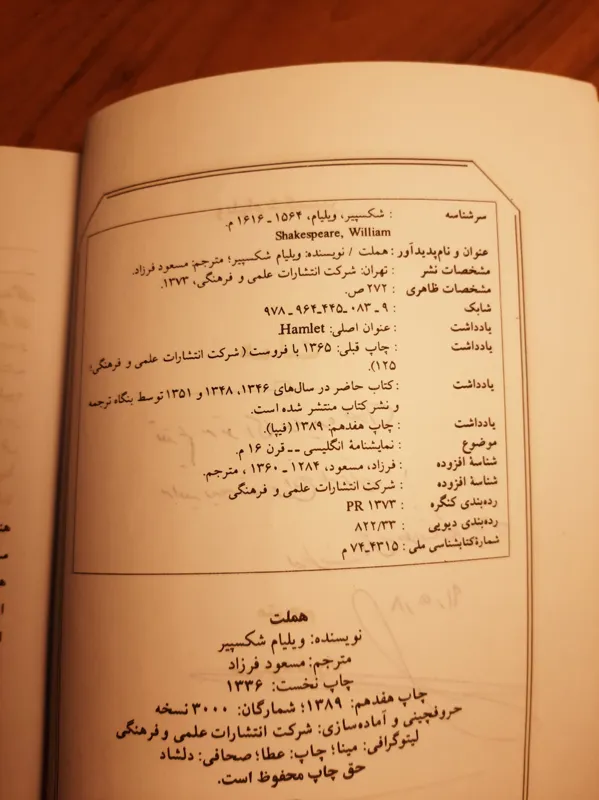 سرشناسه : شکسپیر، ویلیام، ۱۵۶۴ ـ ۱۶۱۶ م.
Shakespeare, William
عنوان و نام‌پدیدآور : هملت / نویسنده: ویلیام شکسپیر؛ مترجم: مسعود فرزاد.
مشخصات نشر : تهران: شرکت انتشارات علمی و فرهنگی، ۱۳۷۳.
مشخصات ظاهری : ۲۷۲ ص.
شابک : ۹ ـ ۰۸۳ ـ ۴۴۵ ـ ۹۶۴ ـ ۹۷۸
یادداشت : عنوان اصلی: Hamlet.
یادداشت : چاپ قبلی: ۱۳۶۵ با فروست (شرکت انتشارات علمی و فرهنگی؛
۱۲۵).
یادداشت : کتاب حاضر در سال‌های ۱۳۴۶، ۱۳۴۸ و ۱۳۵۱ توسط بنگاه ترجمه
و نشر کتاب منتشر شده است.
یادداشت : چاپ هفدهم: ۱۳۸۹ (فیپا).
موضوع : نمایشنامهٔ انگلیسی ـ ـ قرن ۱۶ م.
شناسهٔ افزوده : فرزاد، مسعود، ۱۲۸۴ ـ ۱۳۶۰ ، مترجم.
شناسهٔ افزوده : شرکت انتشارات علمی و فرهنگی
رده‌بندی کنگره : PR ۱۳۷۳
رده‌بندی دیویی : ۸۲۲/۳۳
شمارهٔ کتابشناسی ملی : ۴۳۱۵ـ۷۴ م
هملت
نویسنده: ویلیام شکسپیر
مترجم: مسعود فرزاد
چاپ نخست: ۱۳۳۶
چاپ هفدهم: ۱۳۸۹؛ شمارگان: ۳۰۰۰ نسخه
حروفچینی و آماده‌سازی: شرکت انتشارات علمی و فرهنگی
لیتوگرافی: مینا؛ چاپ: عطا؛ صحافی: دلشاد
حق چاپ محفوظ است.